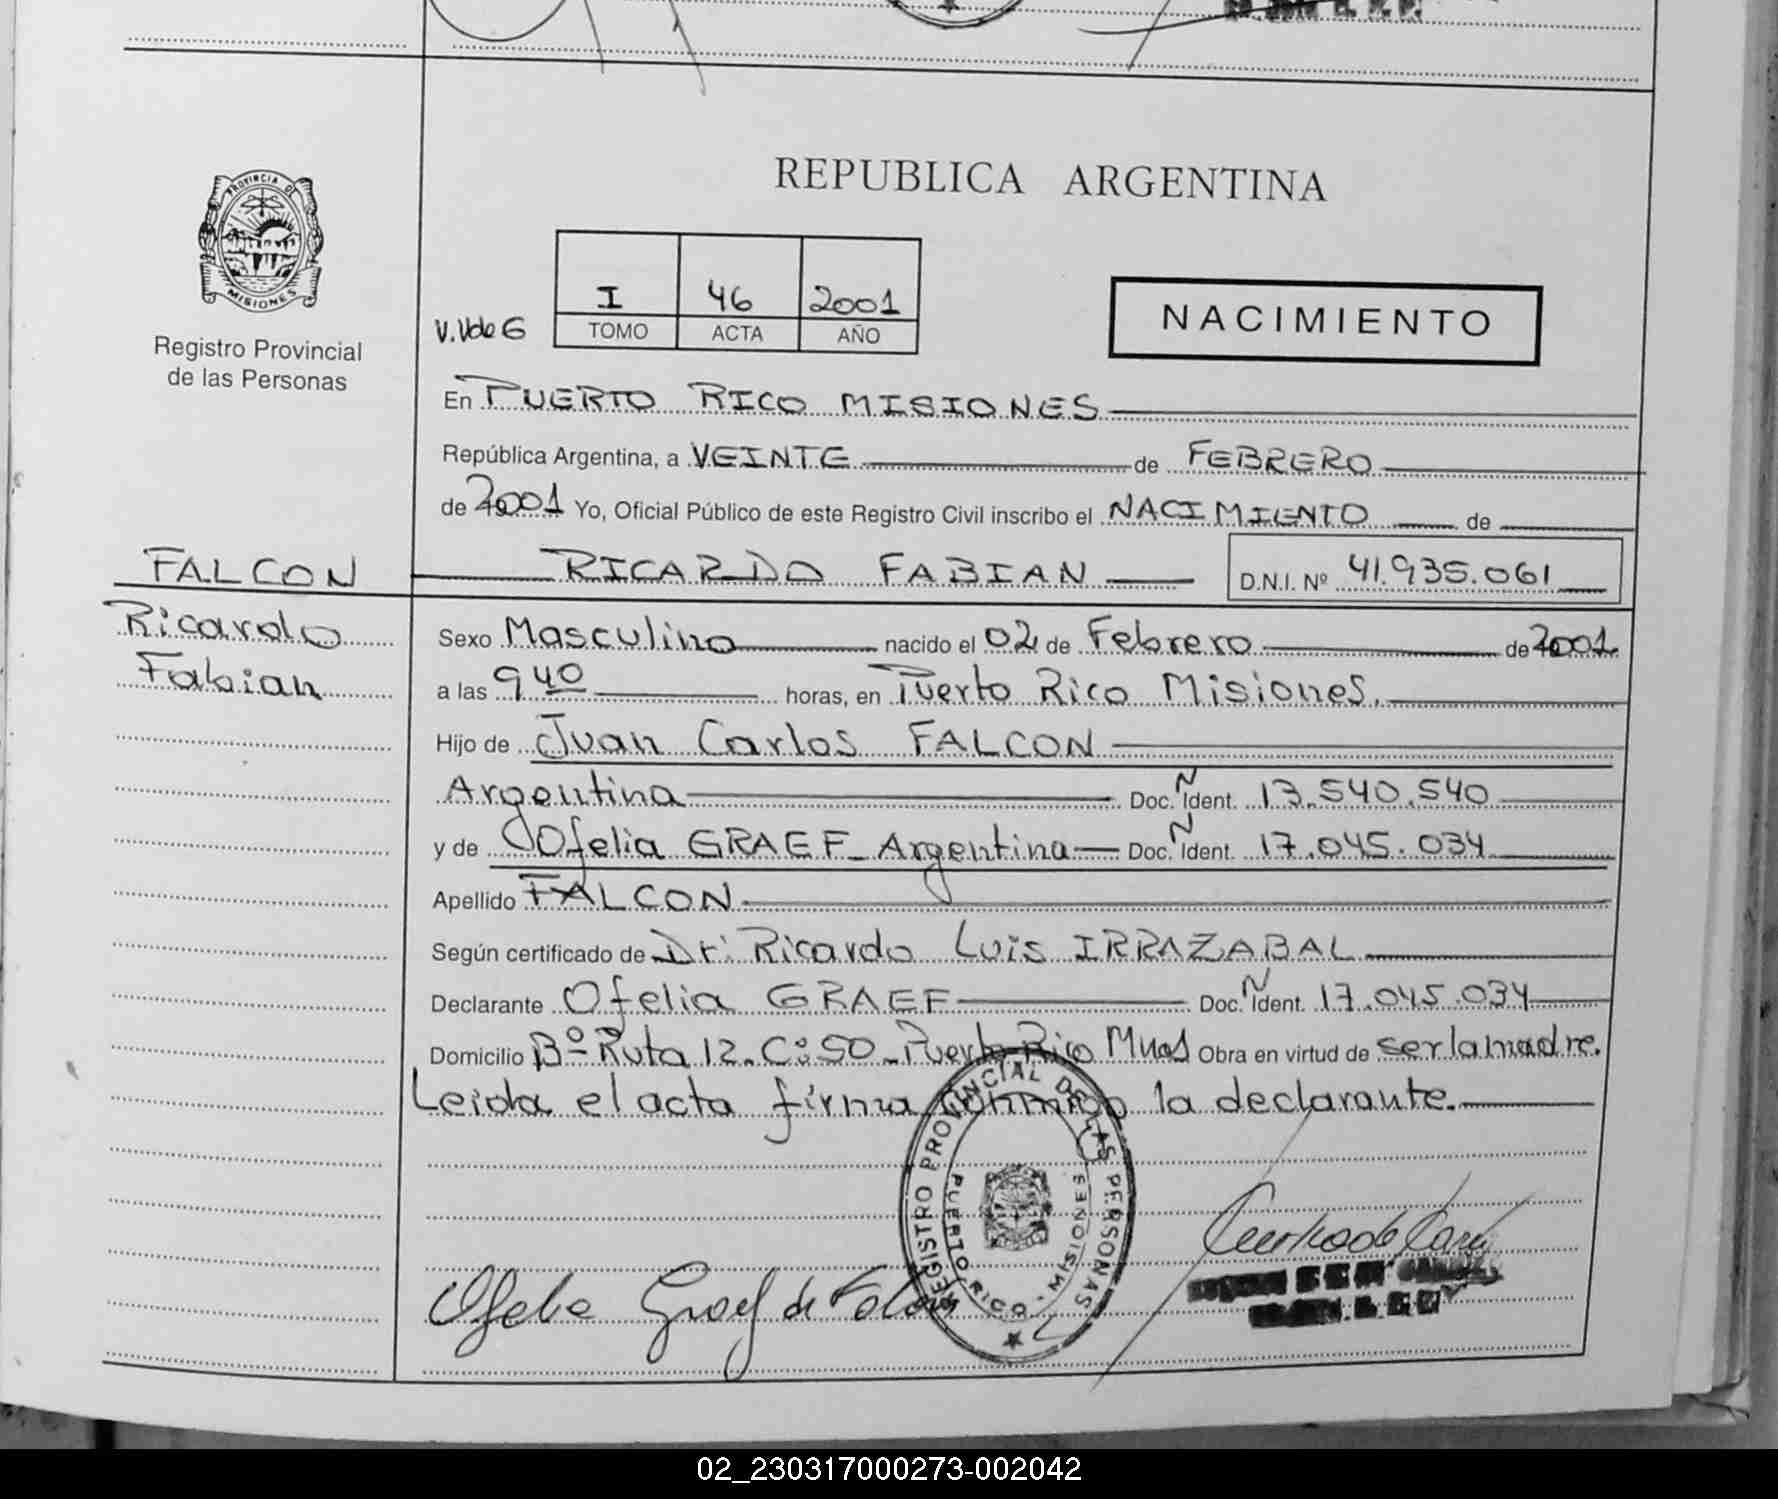 REPUBLICA ARGENTINA
PROVINCIA DE
MISIONES
Registro Provincial
de las Personas
I 46 2001
V.Vde G TOMO ACTA AÑO
NACIMIENTO
En PUERTO RICO MISIONES
República Argentina, a VEINTE de FEBRERO
de 2001 Yo, Oficial Público de este Registro Civil inscribo el NACIMIENTO de
FALCON RICARDO FABIAN D.N.I. Nº 41.935.061
Ricardo
Fabian
Sexo Masculino nacido el 02 de Febrero de 2001.
a las 9 40 horas, en Puerto Rico Misiones.
Hijo de Juan Carlos FALCON
Argentina Doc. Ñ Ident. 13.540.540
y de Ofelia GRAEF - Argentina Doc. Ñ Ident. 17.045.034
Apellido FALCON
Según certificado de Dr: Ricardo Luis IRRAZABAL
Declarante Ofelia GRAEF Doc. Ñ Ident. 17.045.034
Domicilio Bº Ruta 12. C:50 - Puerto Rico Mnes Obra en virtud de ser la madre.
Leida el acta firma conmigo la declarante.
REGISTRO PROVINCIAL DE LAS PERSONAS
PUERTO RICO - MISIONES
Ofelia Graef de Falcon
02_230317000273-002042